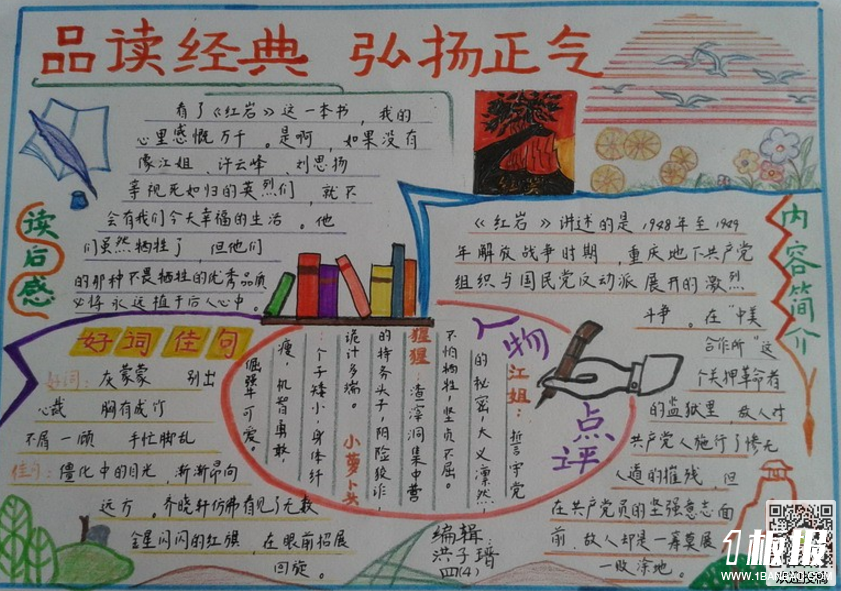 品读经典 弘扬正气
读后感
看了《红岩》这一本书，我的
心里感慨万千。是啊，如果没有
像江姐、许云峰、刘思扬
等视死如归的英烈们，就不
会有我们今天幸福的生活。他
们虽然牺牲了，但他们
的那种不畏牺牲的优秀品质
必将永远植于后人心中。
红岩
内容简介
《红岩》讲述的是1948年至1949
年解放战争时期，重庆地下共产党
组织与国民党反动派展开的激烈
斗争。在“中美
合作所”这
个关押革命者
的监狱里，敌人对
共产党人施行了惨无
人道的摧残，但
在共产党员的坚强意志面
前，敌人却是一筹莫展
一败涂地。
好词佳句
好词：灰蒙蒙 别出
心裁 胸有成竹
不屑一顾 手忙脚乱
佳句：僵化中的目光，渐渐昂向
远方。齐晓轩仿佛看见了无数
金星闪闪的红旗，在眼前招展
回旋。
人物点评
江姐：誓守党
的秘密，大义凛然，
不怕牺牲，坚贞不屈。
猩猩：渣滓洞集中营
的特务头子，阴险狡诈，
诡计多端。 小萝卜头
：个子矮小，身体纤
瘦，机智勇敢，
倔强可爱。
编辑：
洪子瑨
四(4)
1板报
WWW.1BANBAO.COM